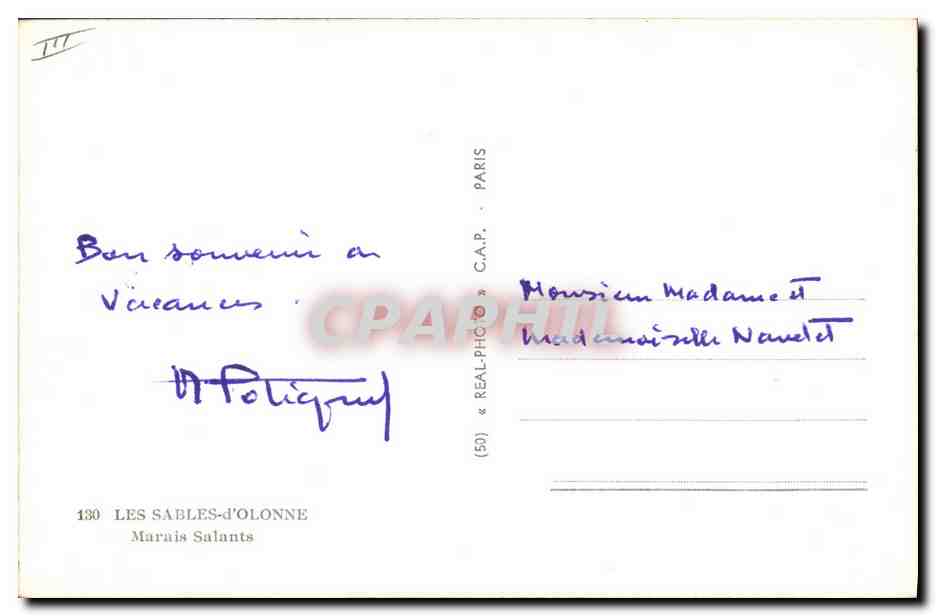 III
Bon souvenir en
Vacances.
130 LES SABLES-d'OLONNE
Marais Salants
(50) « REAL-PHOTO » C.A.P. · PARIS
CPAPHIL
Monsieur Madame et
Mademoiselle Naudet